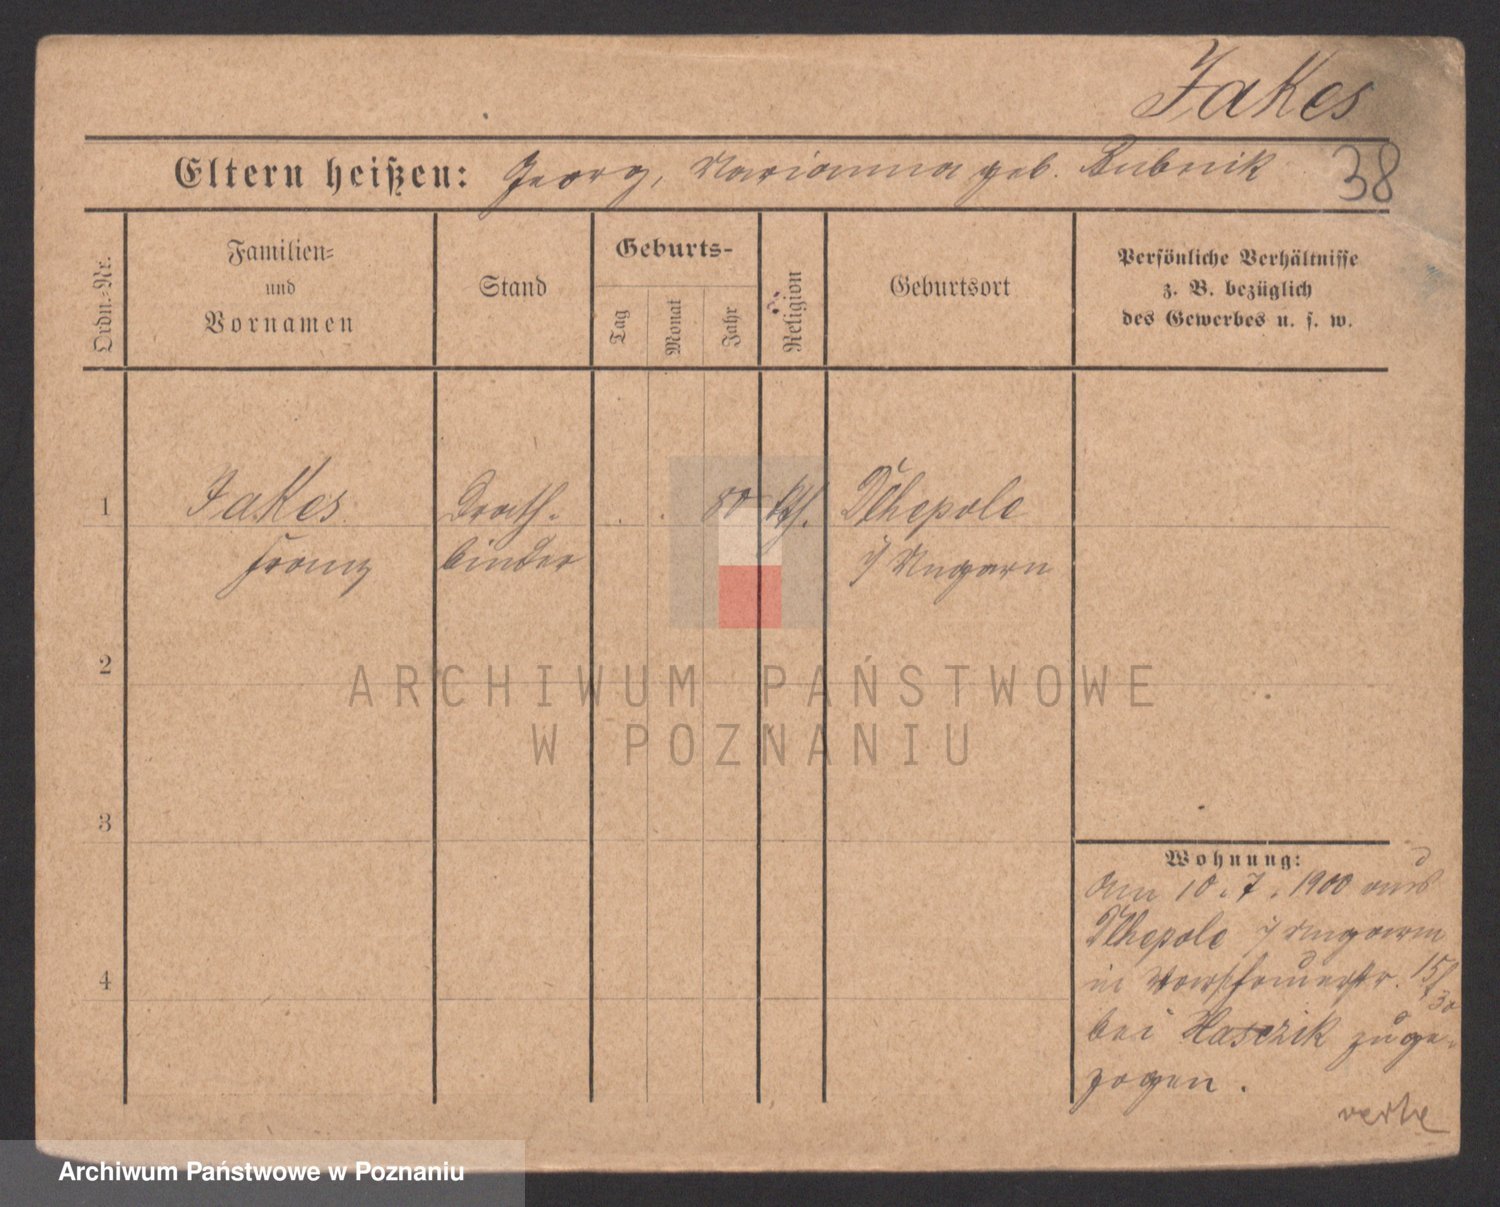 Jakes
Eltern heißen: Georg, Marianna geb. Bubnik
38
Ordn.-Nr.
Familien-
und
Vornamen
Stand
Geburts-
Tag
Monat
Jahr
Religion
Geburtsort
Persönliche Verhältnisse
z. B. bezüglich
des Gewerbes u. s. w.
1
Jakes
Franz
Drath-
binder
80
kth.
Dlhepole
i/ Ungarn
2
ARCHIWUM PAŃSTWOWE
W POZNANIU
3
Wohnung:
Am 10. 7. 1900 aus
Dlhepole i/ Ungarn
in 15/
30
bei Hasczik zuge-
zogen.
4
Archiwum Państwowe w Poznaniu